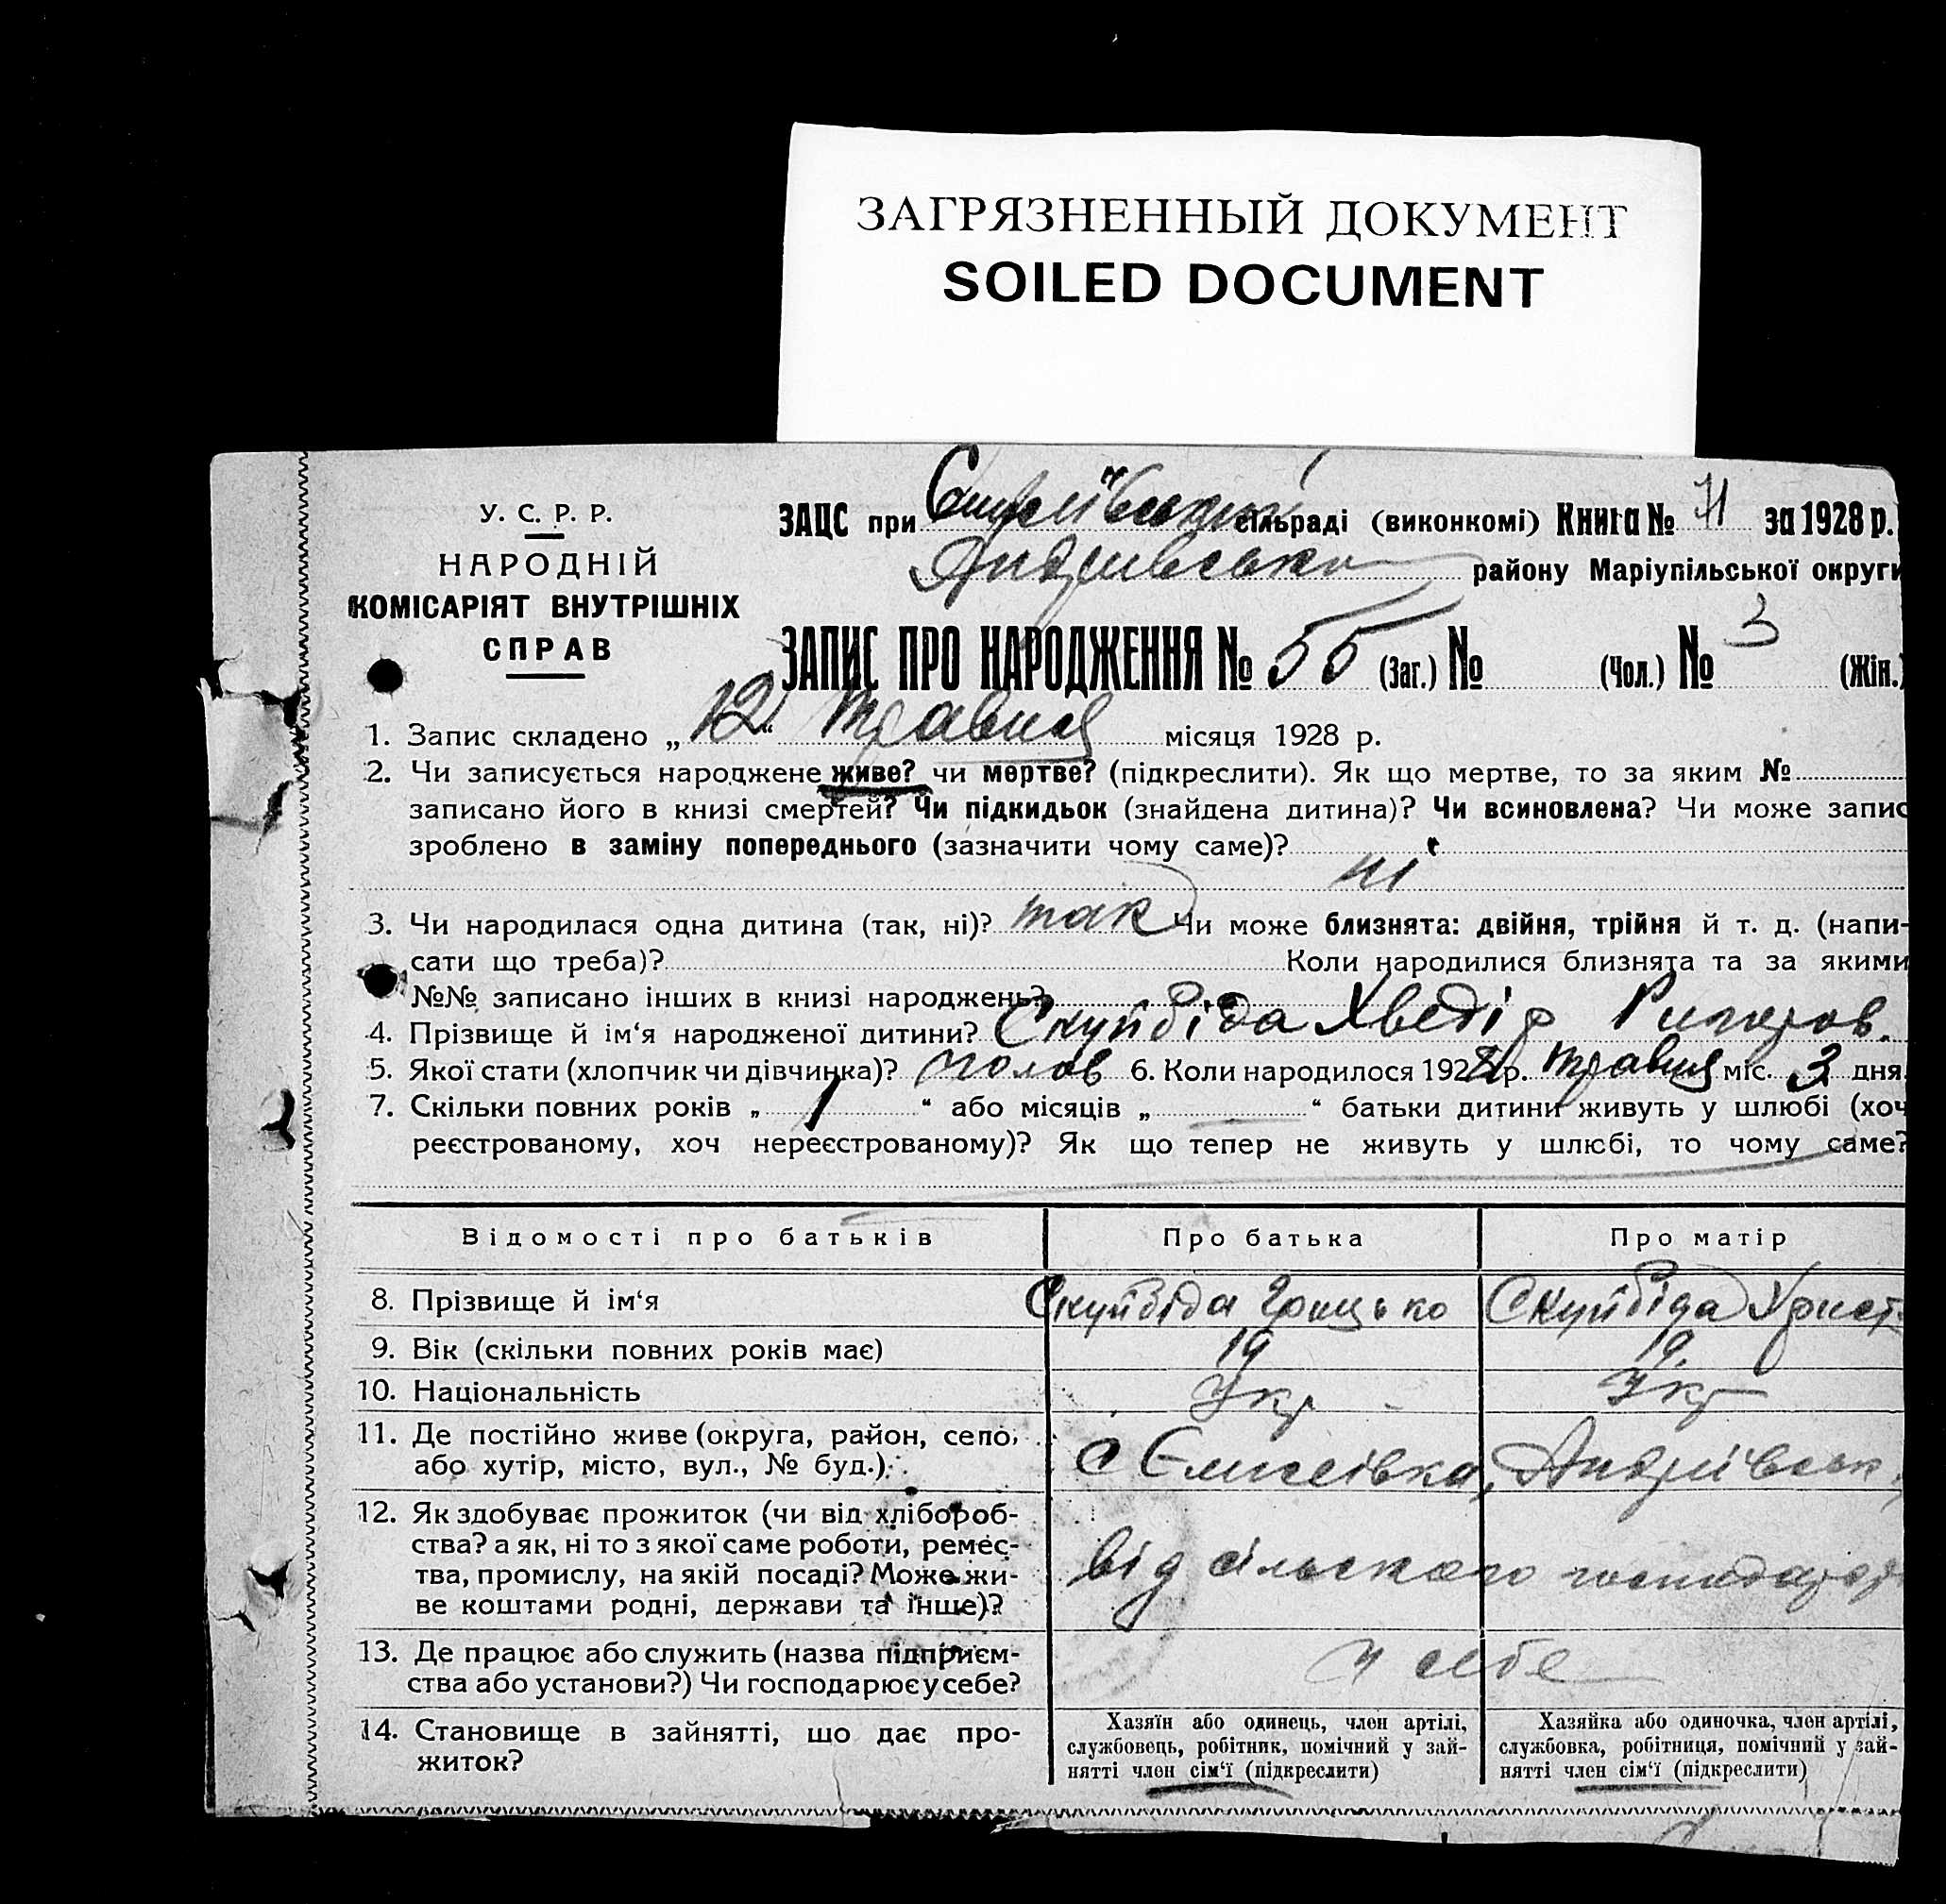 ЗАГРЯЗНЕННЫЙ ДОКУМЕНТ
SOILED DOCUMENT
У. С. Р. Р.
НАРОДНІЙ
КОМІСАРІЯТ ВНУТРІШНІХ
СПРАВ
ЗАЦС при сільраді (виконкомі) Книга № за 1928 р.
району Маріупільської округи
ЗАПИС ПРО НАРОДЖЕННЯ № 55 (Заг.) № (Чол.) № 3 (Жін.)
1. Запис складено „12“ травня місяця 1928 р.
2. Чи записується народжене живе? чи мертве? (підкреслити). Як що мертве, то за яким №
записано його в книзі смертей? Чи підкидьок (знайдена дитина)? Чи всиновлена? Чи може запис
зроблено в заміну попереднього (зазначити чому саме)?
ні
3. Чи народилася одна дитина (так, ні)? так Чи може близнята: двійня, трійня й т. д. (напи-
сати що треба)? Коли народилися близнята та за якими
№№ записано інших в книзі народжень?
4. Прізвище й ім‘я народженої дитини? Скупбіда Хведір
5. Якої стати (хлопчик чи дівчинка)? полов 6. Коли народилося 1928 р. травня міс. 3 дня.
7. Скільки повних років „ 1 “ або місяців „ “ батьки дитини живуть у шлюбі (хоч
реєстрованому, хоч нереєстрованому)? Як що тепер не живуть у шлюбі, то чому саме?
Відомості про батьків Про батька Про матір
8. Прізвище й ім‘я Скупбіда Грицько Скупбіда Христ
9. Вік (скільки повних років має) 19 19
10. Національність Укр Укр
11. Де постійно живе (округа, район, село,
або хутір, місто, вул., № буд.). с Андріївськ
12. Як здобуває прожиток (чи від хлібороб-
ства? а як, ні то з якої саме роботи, ремес-
тва, промислу, на якій посаді? Може жи-
ве коштами родні, держави та інше)?
від сільского господар
13. Де працює або служить (назва підприєм-
ства або установи?) Чи господарює у себе?
у себе
14. Становище в зайнятті, що дає про-
житок?
Хазяїн або одинець, член артілі,
службовець, робітник, помічний у зай-
нятті член сім‘ї (підкреслити)
Хазяйка або одиночка, член артілі,
службовка, робітниця, помічний у зай-
нятті член сім‘ї (підкреслити)